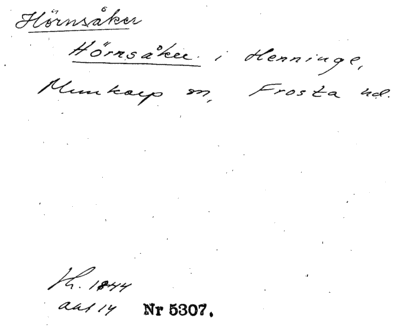 Hörnsåker
Hörnsåker i Henninge,
Munkarp sn, Frosta hd.
Th. 1844
akt 14 Nr 5307.